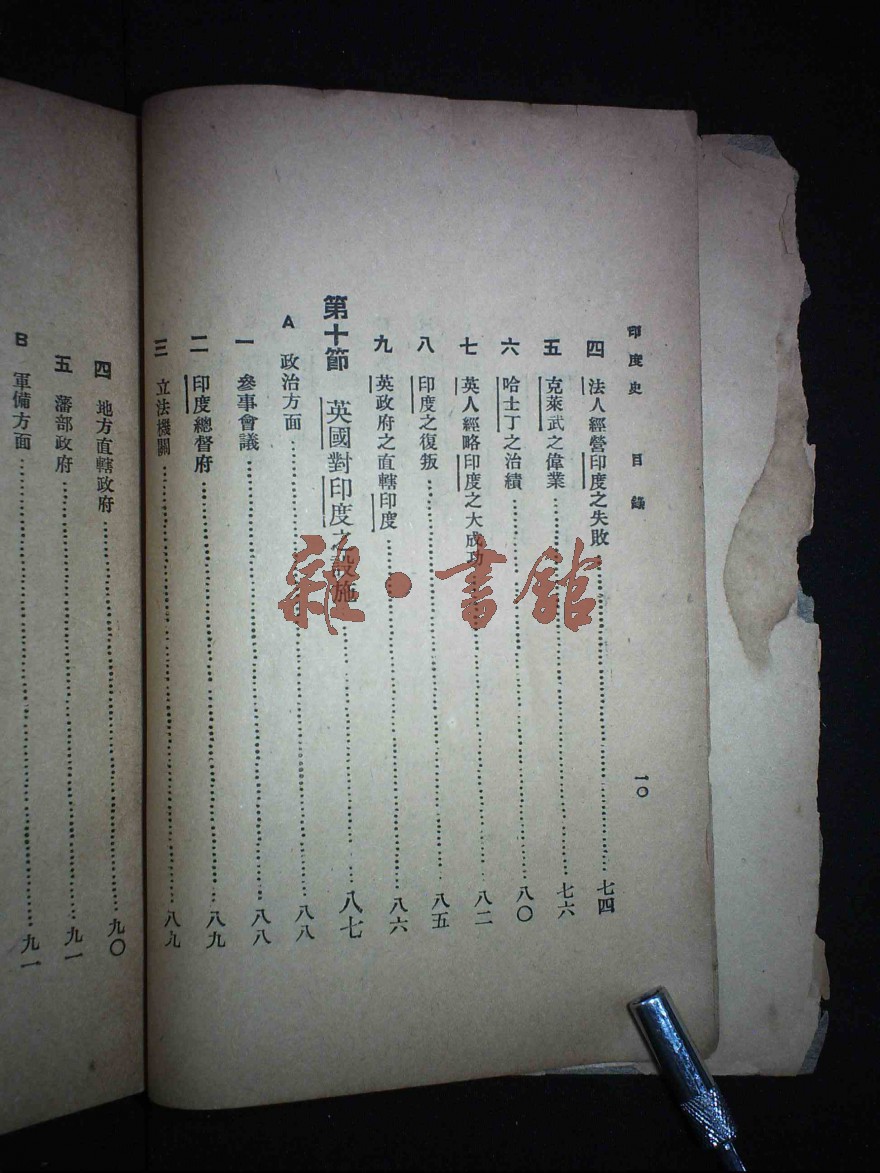 印度史 目錄 一〇
四 法人經營印度之失敗 七四
五 克萊武之偉業 七六
六 哈士丁之治績 八〇
七 英人經略印度之大成功 八二
八 印度之復叛 八五
九 英政府之直轄印度 八六
第十節 英國對印度之設施 八七
A 政治方面 八八
一 參事會議 八八
二 印度總督府 八九
三 立法機關 八九
四 地方直轄政府 九〇
五 藩部政府 九一
B 軍備方面 九一
雜·書館